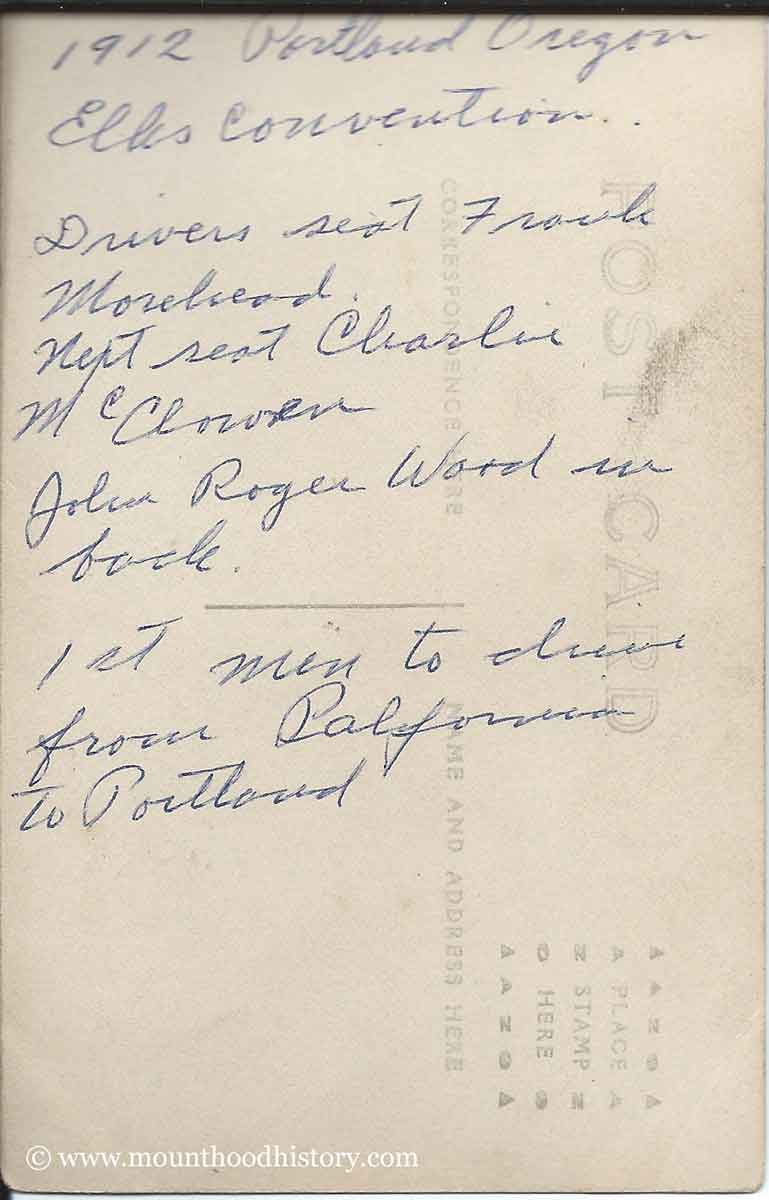 1912 Portland Oregon
Elks Convention..
Drivers seat Frank
Morehead.
Next seat Charlie
McClowen
John Roger Wood in
back.
1st men to drive
from California
to Portland
POST CARD
CORRESPONDENCE HERE
NAME AND ADDRESS HERE
AZOA
PLACE
STAMP
HERE
AZOA
© www.mounthoodhistory.com